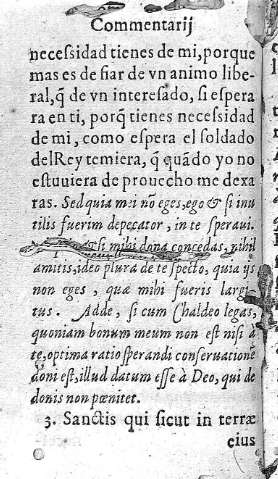 Commentarij
necessidad tienes de mi, porque
mas es de fiar de vn animo libe-
ral, q̃ de vn interesado, si espera
ra en ti, porq̃ tienes necessidad
de mi, como espera el soldado
del Rey temiera, q̃ quãdo yo no
estuuiera de prouecho me dexa
ras. Sed quia me non eges, ego & si inu
tilis fuerim depecator, in te speraui.
& si mihi dona concedas, nihil
amitis, ideo plura de te specto, quia ijs
non eges, quæ mihi fueris largi-
tus. Adde, si cum Chaldeo legas,
quoniam bonum meum non est nisi à
te, optima ratio sperandi conseruatione
doni est, illud datum esse à Deo, qui de
donis non pœnitet.
3. Sanctis qui sicut in terræ
eius